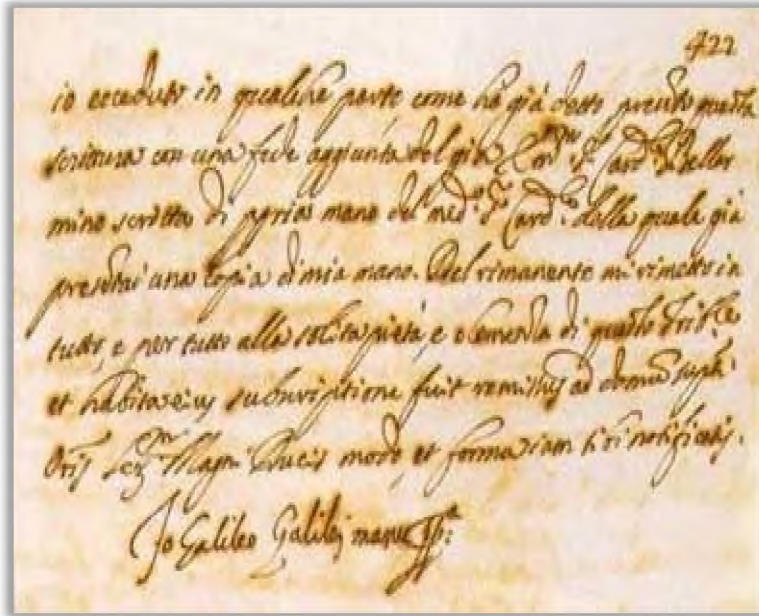 422
io ecceduto in qualche parte come ho già detto presento questa
scrittura con una fede aggiunta del già Card. Bellar
mino scritta di propria mano del med.º S. Card.e della quale già
presentai una copia di mia mano. Del rimanente mi rimetto in
tutto, e per tutto alla solita pietà, e clemenza di questo Trib.le
et habita eius subscriptione fuit remissus ad domum supti
Oris Ser.mi Magni Ducis modo et forma iam sibi notificatis.
Io Galileo Galilej manu pp.a